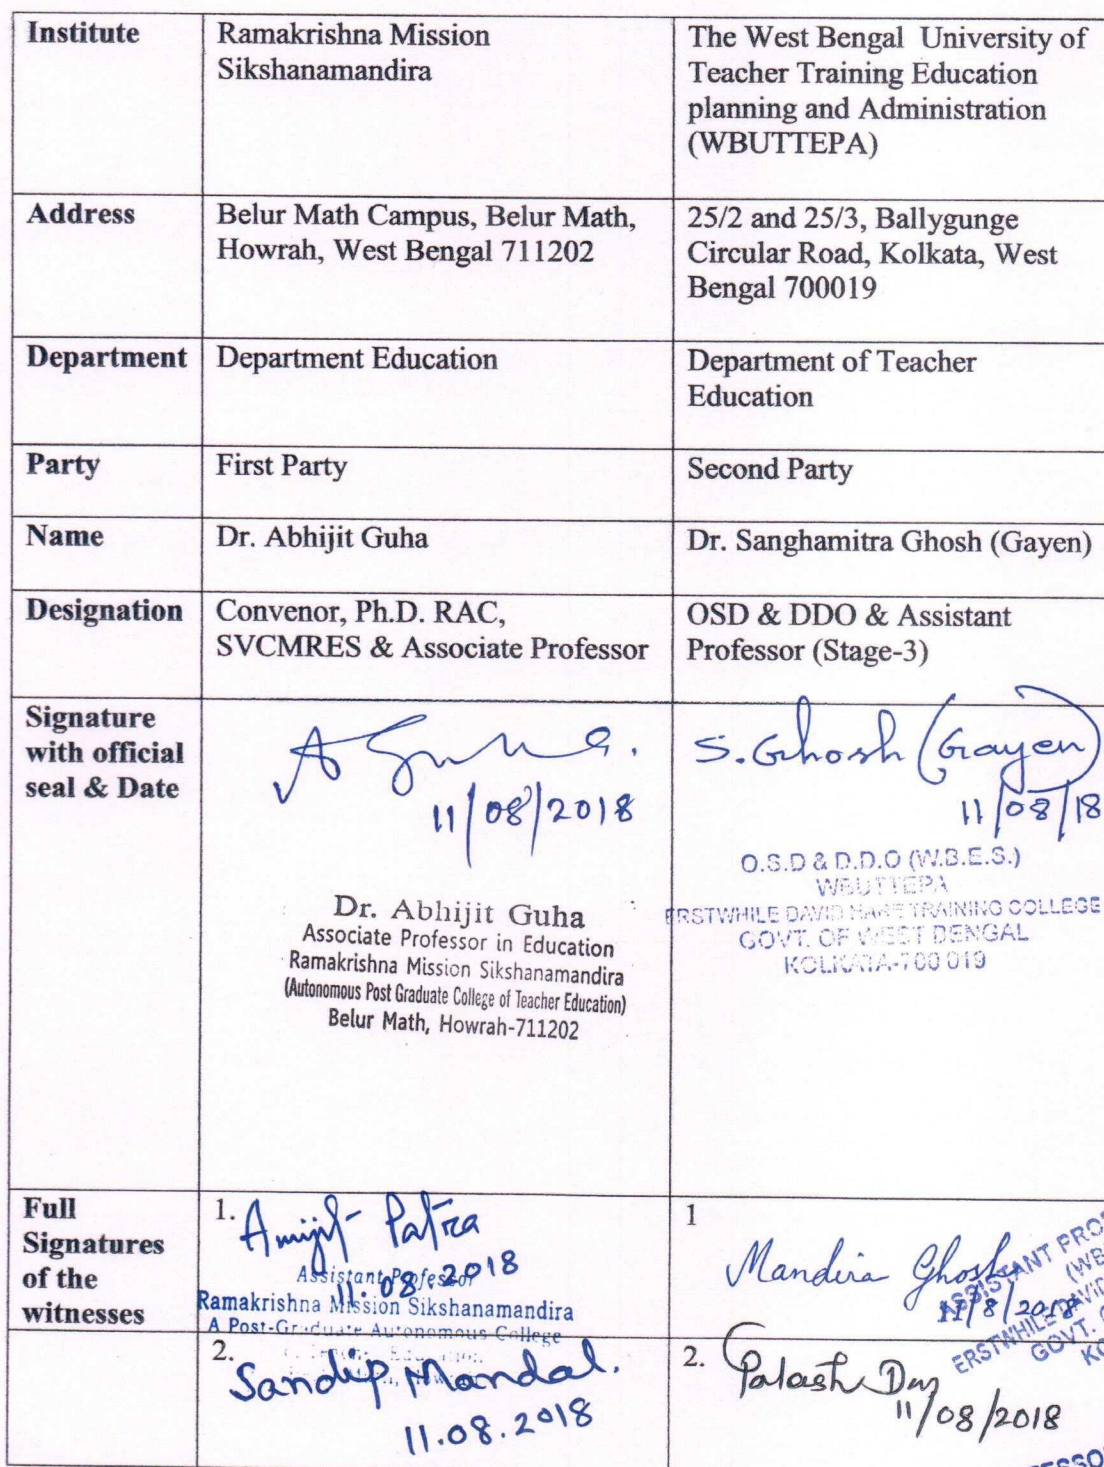 Institute
Ramakrishna Mission
Sikshanamandira
The West Bengal University of
Teacher Training Education
planning and Administration
(WBUTTEPA)
Address
Belur Math Campus, Belur Math,
Howrah, West Bengal 711202
25/2 and 25/3, Ballygunge
Circular Road, Kolkata, West
Bengal 700019
Department
Department Education
Department of Teacher
Education
Party
First Party
Second Party
Name
Dr. Abhijit Guha
Dr. Sanghamitra Ghosh (Gayen)
Designation
Convenor, Ph.D. RAC,
SVCMRES & Associate Professor
OSD & DDO & Assistant
Professor (Stage-3)
Signature
with official
seal & Date
A Guha.
11/08/2018
Dr. Abhijit Guha
Associate Professor in Education
Ramakrishna Mission Sikshanamandira
(Autonomous Post Graduate College of Teacher Education)
Belur Math, Howrah-711202
S. Ghosh (Gayen)
11/08/18
O.S.D & D.D.O (W.B.E.S.)
WBUTTEPA
ERSTWHILE DAVID HARE TRAINING COLLEGE
GOVT. OF WEST BENGAL
KOLKATA-700 019
Full
Signatures
of the
witnesses
1.
Amijit Patra
11.08.2018
Assistant Professor
Ramakrishna Mission Sikshanamandira
A Post-Graduate Autonomous College
1
Mandira Ghosh
11/8/2018
ASSISTANT PRO
(WB
ERSTWHILE DAVID
GOVT.
KO
2.
Sandip Mandal.
11.08.2018
2.
Palash Das
11/08/2018
ESSO